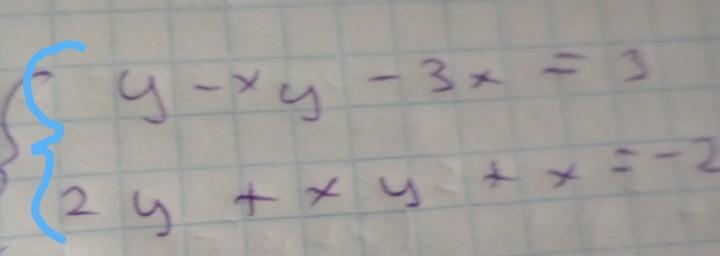 y - xy - 3x = 3
2y + xy + x = -2